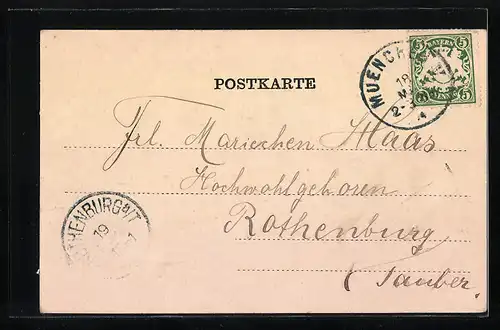 POSTKARTE
MUENCHEN
18
2-3
BAYERN
5 5
5 5
Frl. Mariechen Haas
Hochwohlgeboren
Rothenburg
(Tauber.
ROTHENBURG a/T
19